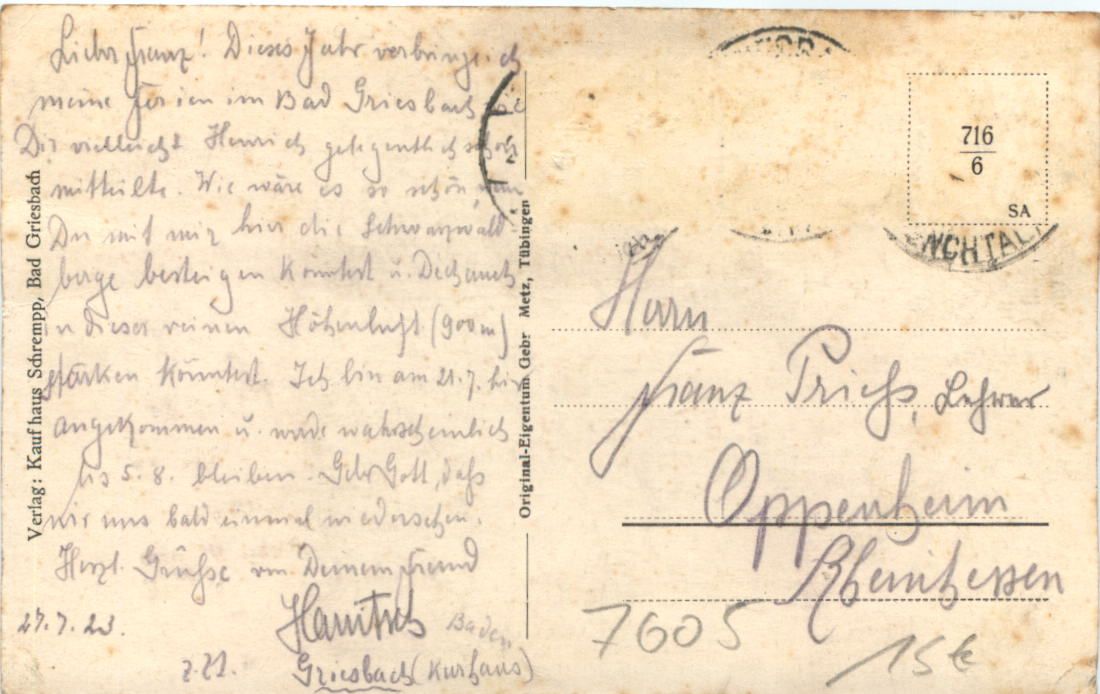 Lieber Franz! Dieses Jahr verbringe ich
meine Ferien im Bad Griesbach wie
Dir vielleicht Henrich gelegentlich schon
mitteilte. Wie wäre es so schön, wenn
Du mit mir hier die Schwarzwald-
berge besteigen könntest u. Dich auch
in dieser reinen Höhenluft (900m)
stärken könntest. Ich bin am 21.7. hier
angekommen u. werde wahrscheinlich
bis 5. 8. bleiben. Geb Gott, daß
wir uns bald einmal wiedersehen.
Herzl. Grüsse von Deinem Freund
27.7.23.
z. Zt. Griesbach (Kurhaus)
Baden
Verlag: Kaufhaus Schrempp, Bad Griesbach
Original-Eigentum Gebr. Metz, Tübingen
716
6
SA
NCHTAL
Herrn
Franz Lehrer
Oppenheim
Rheinhessen
7605
15€